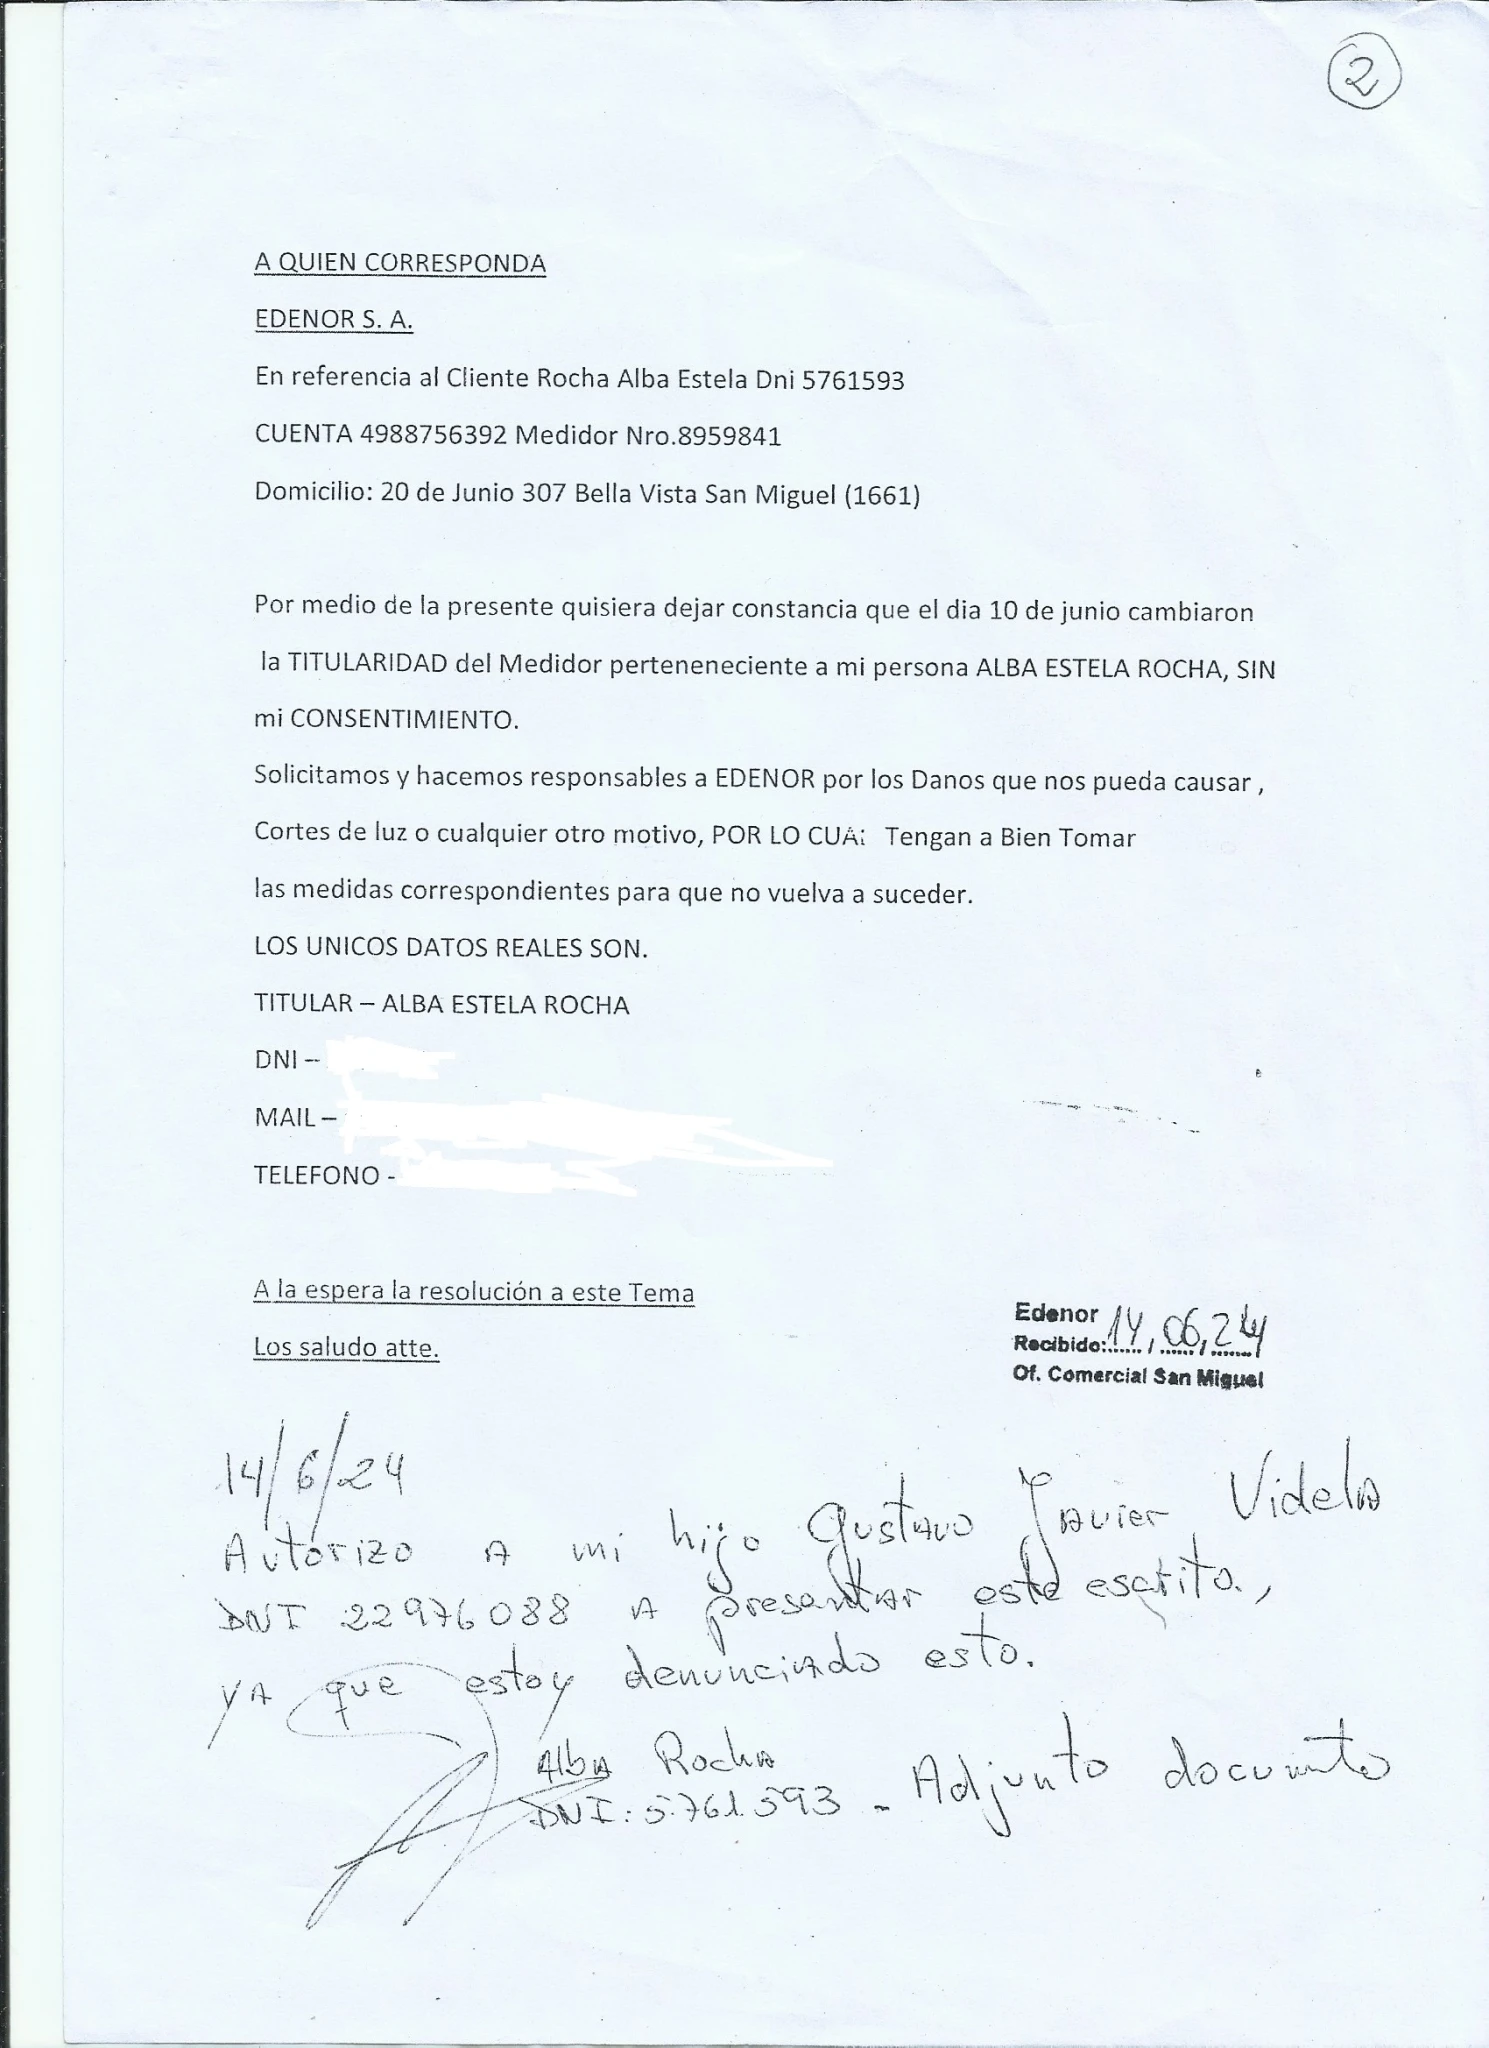 2
A QUIEN CORRESPONDA
EDENOR S. A.
En referencia al Cliente Rocha Alba Estela Dni 5761593
CUENTA 4988756392 Medidor Nro.8959841
Domicilio: 20 de Junio 307 Bella Vista San Miguel (1661)
Por medio de la presente quisiera dejar constancia que el dia 10 de junio cambiaron
la TITULARIDAD del Medidor perteneneciente a mi persona ALBA ESTELA ROCHA, SIN
mi CONSENTIMIENTO.
Solicitamos y hacemos responsables a EDENOR por los Danos que nos pueda causar ,
Cortes de luz o cualquier otro motivo, POR LO CUAL Tengan a Bien Tomar
las medidas correspondientes para que no vuelva a suceder.
LOS UNICOS DATOS REALES SON.
TITULAR – ALBA ESTELA ROCHA
DNI –
MAIL –
TELEFONO -
A la espera la resolución a este Tema
Los saludo atte.
Edenor
Recibido: 14, 06, 24
Of. Comercial San Miguel
14/6/24
Autorizo A mi hijo Gustavo Javier Videla
DNI 22976088 A presentar este escrito.,
YA que estoy denunciado esto.
Alba Rocha
DNI: 5.761.593 - Adjunto documto